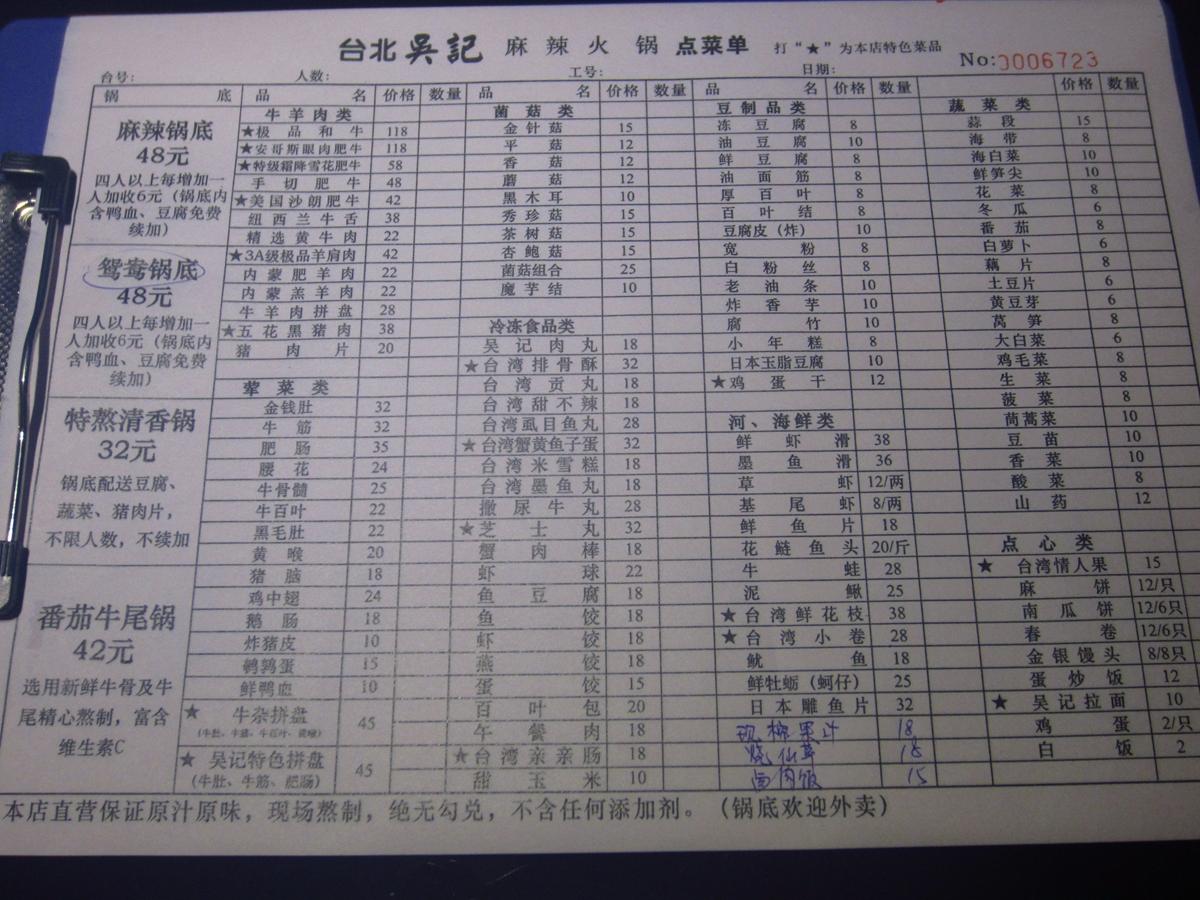 台北吳記 麻辣火锅 点菜单 打“★”为本店特色菜品 No:0006723
台号: 人数: 工号: 日期:
锅底
麻辣锅底
48元
四人以上每增加一
人加收6元（锅底内
含鸭血、豆腐免费
续加）
鸳鸯锅底
48元
四人以上每增加一
人加收6元（锅底内
含鸭血、豆腐免费
续加）
特熬清香锅
32元
锅底配送豆腐、
蔬菜、猪肉片，
不限人数，不续加
番茄牛尾锅
42元
选用新鲜牛骨及牛
尾精心熬制，富含
维生素C
品名 价格 数量
牛羊肉类
★极品和牛 118
★安哥斯眼肉肥牛 118
★特级霜降雪花肥牛 58
手切肥牛 48
★美国沙朗肥牛 42
纽西兰牛舌 38
精选黄牛肉 22
★3A级极品羊肩肉 42
内蒙肥羊肉 22
内蒙羔羊肉 22
牛羊肉拼盘 28
★五花黑猪肉 38
猪肉片 20
荤菜类
金钱肚 32
牛筋 32
肥肠 35
腰花 24
牛骨髓 25
牛百叶 22
黑毛肚 22
黄喉 20
猪脑 18
鸡中翅 24
鹅肠 18
炸猪皮 10
鹌鹑蛋 15
鲜鸭血 10
★ 牛杂拼盘 45
★ 吴记特色拼盘 45
(牛肚、牛筋、肥肠)
品名 价格 数量
菌菇类
金针菇 15
平菇 12
香菇 12
蘑菇 12
黑木耳 10
秀珍菇 15
茶树菇 15
杏鲍菇 15
菌菇组合 25
魔芋结 10
冷冻食品类
吴记肉丸 18
★台湾排骨酥 32
台湾贡丸 18
台湾甜不辣 18
台湾虱目鱼丸 28
★台湾蟹黄鱼子蛋 32
台湾米雪糕 18
台湾墨鱼丸 18
撒尿牛丸 28
★芝士丸 32
蟹肉棒 18
虾球 22
鱼豆腐 18
鱼饺 18
虾饺 18
燕饺 18
蛋饺 15
百叶包 20
午餐肉 18
★台湾亲亲肠 18
甜玉米 10
品名 价格 数量
豆制品类
冻豆腐 8
油豆腐 10
鲜豆腐 8
油面筋 8
厚百叶 8
百叶结 8
豆腐皮（炸） 10
宽粉 8
白粉丝 8
老油条 10
炸香芋 10
腐竹 10
小年糕 8
日本玉脂豆腐 10
★鸡蛋干 12
河、海鲜类
鲜虾滑 38
墨鱼滑 36
草虾 12/两
基尾虾 8/两
鲜鱼片 18
花鲢鱼头 20/斤
牛蛙 28
泥鳅 25
★台湾鲜花枝 38
★台湾小卷 28
鱿鱼 18
鲜牡蛎（蚵仔） 25
日本雕鱼片 32
现榨果汁 18
烧仙草 18
卤肉饭 15
价格 数量
蔬菜类
蒜段 15
海带 8
海白菜 10
鲜笋尖 10
花菜 8
冬瓜 6
番茄 8
白萝卜 6
藕片 8
土豆片 6
黄豆芽 6
莴笋 8
大白菜 6
鸡毛菜 8
生菜 8
菠菜 8
茼蒿菜 10
豆苗 10
香菜 10
酸菜 8
山药 12
点心类
★ 台湾情人果 15
麻饼 12/只
南瓜饼 12/6只
春卷 12/6只
金银馒头 8/8只
蛋炒饭 12
★ 吴记拉面 10
鸡蛋 2/只
白饭 2
本店直营保证原汁原味，现场熬制，绝无勾兑，不含任何添加剂。（锅底欢迎外卖）